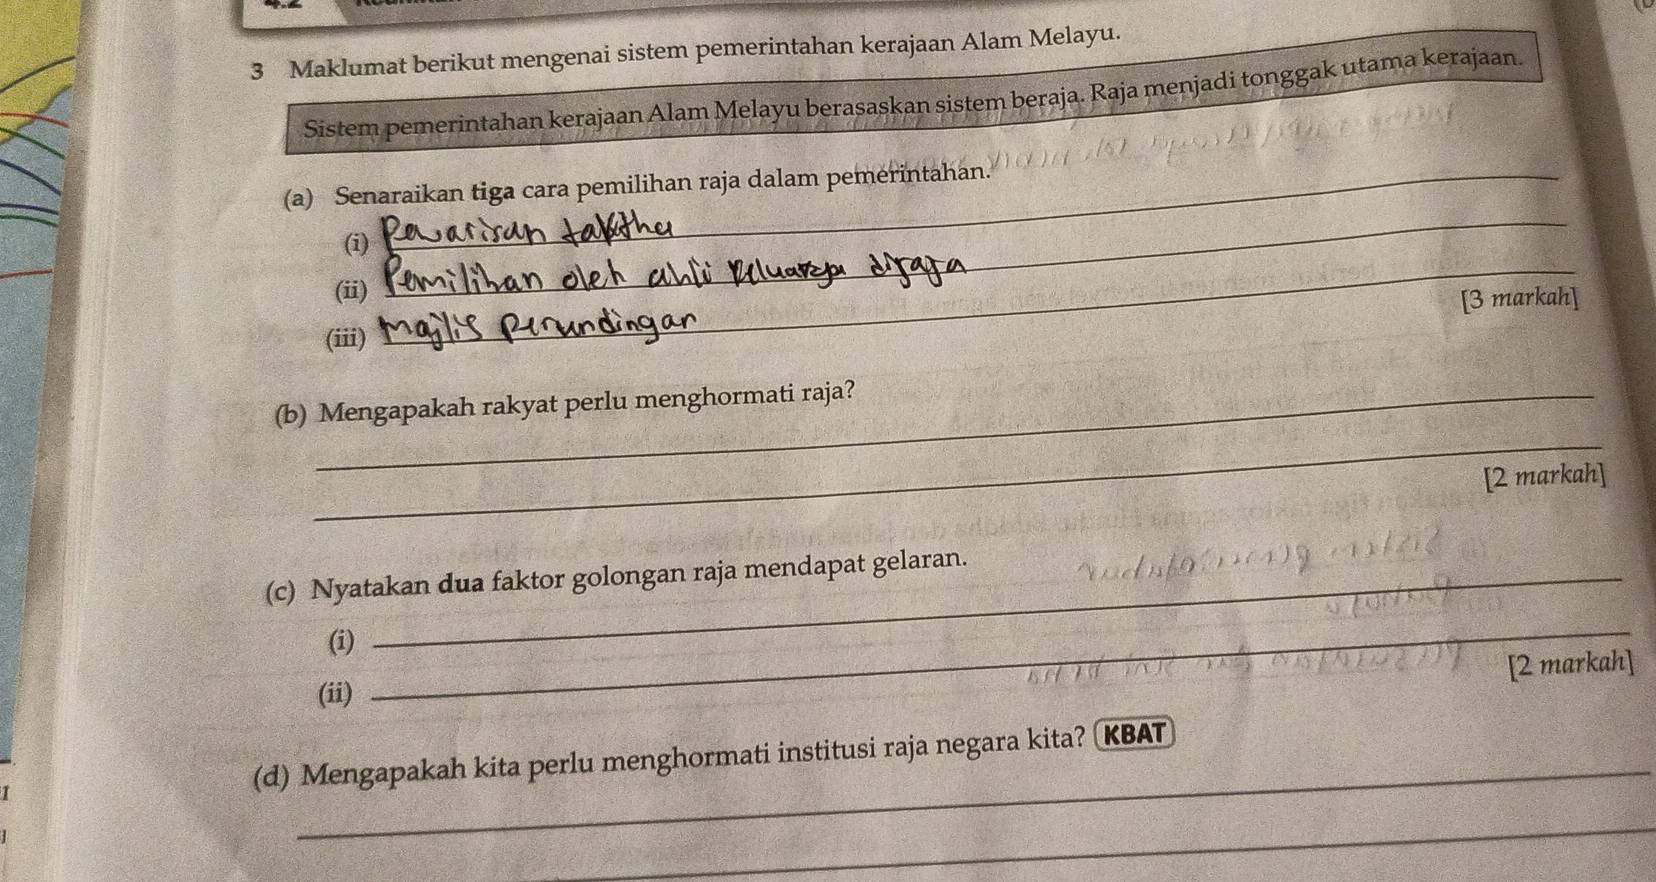 4.2
3 Maklumat berikut mengenai sistem pemerintahan kerajaan Alam Melayu.
Sistem pemerintahan kerajaan Alam Melayu berasaskan sistem beraja. Raja menjadi tonggak utama kerajaan.
(a) Senaraikan tiga cara pemilihan raja dalam pemerintahan.
(i) Pewarisan
(ii) Pemilihan oleh ahli diraja
(iii) Majlis Perundingan
[3 markah]
(b) Mengapakah rakyat perlu menghormati raja?
[2 markah]
(c) Nyatakan dua faktor golongan raja mendapat gelaran.
(i)
(ii)
[2 markah]
(d) Mengapakah kita perlu menghormati institusi raja negara kita? KBAT